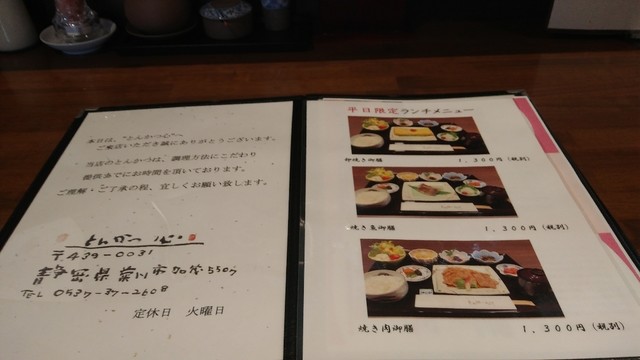 本日は、"とんかつ心"へ
ご来店いただき誠にありがとうございます。
当店のとんかつは、調理方法にこだわり
提供までにお時間を頂いております。
ご理解・ご了承の程、宜しくお願い致します。
とんかつ 心
〒439-0031
静岡県菊川市加茂5507
TEL 0537-37-2608
定休日 火曜日
平日限定ランチメニュー
卵焼き御膳 1,300円(税別)
焼き魚御膳 1,300円(税別)
焼き肉御膳 1,300円(税別)